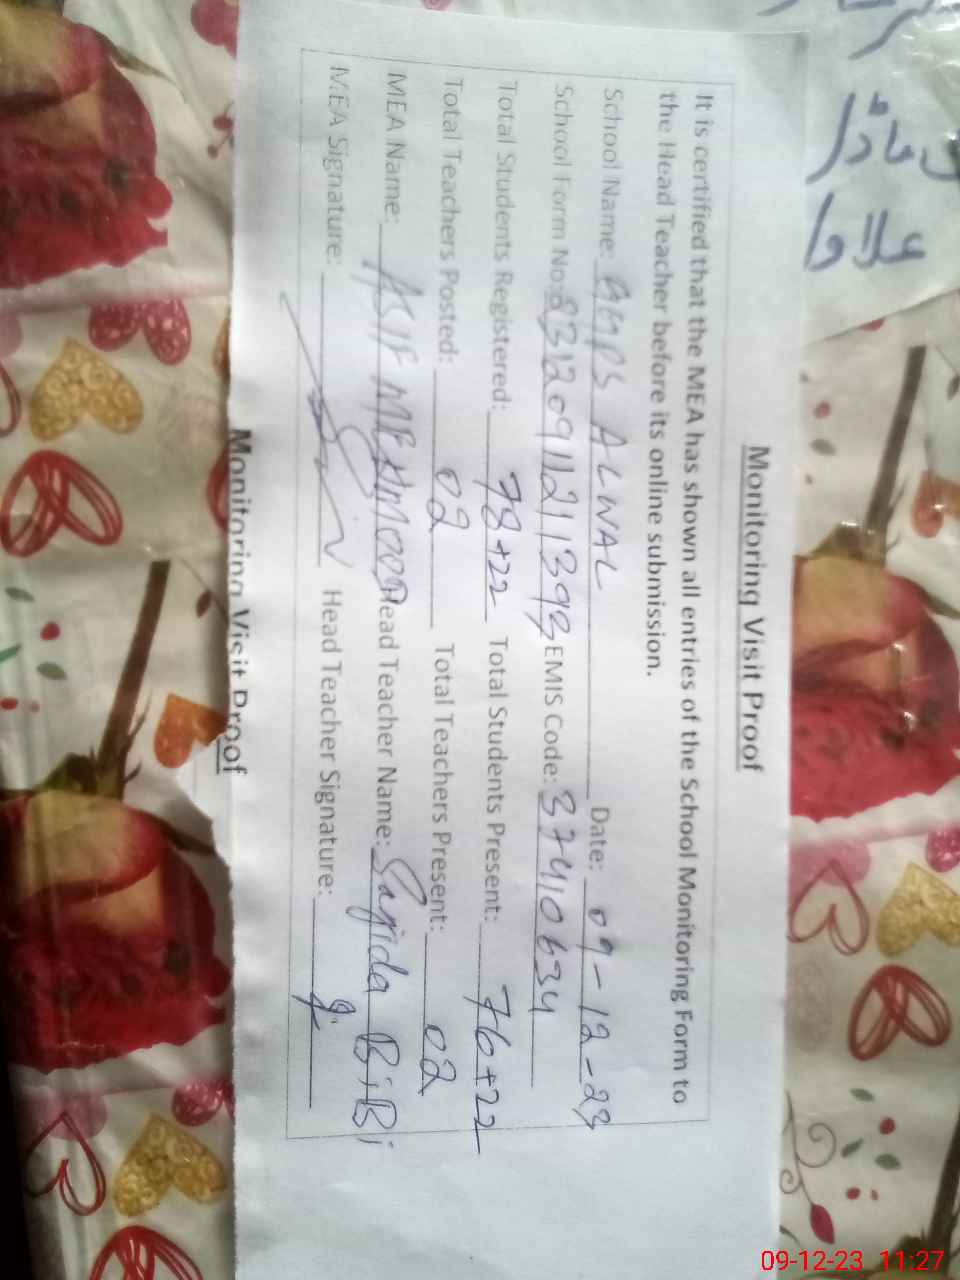 Monitoring Visit Proof
It is certified that the MEA has shown all entries of the School Monitoring Form to
the Head Teacher before its online submission.
School Name: GGPS ALWAL Date: 09-12-23
School Form No: 83120911211393 EMIS Code: 37410634
Total Students Registered: 78+22 Total Students Present: 76+22
Total Teachers Posted: 02 Total Teachers Present: 02
MEA Name: ASIF MEHMOOD Head Teacher Name: Sajida BiBi
MEA Signature: Head Teacher Signature:
Monitoring Visit Proof
علاوہ
09-12-23 11:27